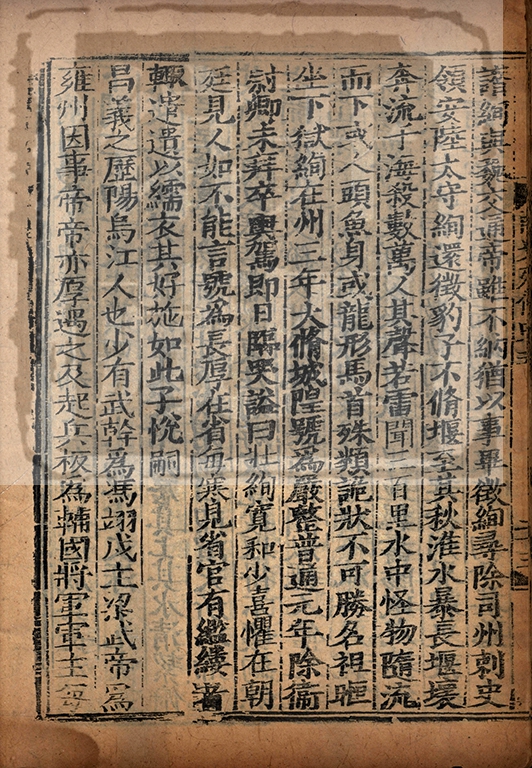 譖絢與魏交通帝雖不納猶以事畢徵絢尋除司州刺史
領安陸太守絢還徵豹子不脩堰至其秋淮水暴長堰壞
奔流于海殺數萬人其聲若雷聞三百里水中怪物隨流
而下或人頭魚身或龍形馬首殊類詭狀不可勝名祖暅
坐下獄絢在州三年大脩城隍號為嚴整普通元年除衞
尉卿未拜卒輿駕即日臨哭諡曰壯絢寬和少喜懼在朝
廷見人如不能言號為長厚在省每寒見省官有繿縷者
輙遣遺以襦衣其好施如此子悅嗣
昌義之歷陽烏江人也少有武幹為馮翊戍主梁武帝為
雍州因事帝帝亦厚遇之及起兵板為輔國將軍軍主每